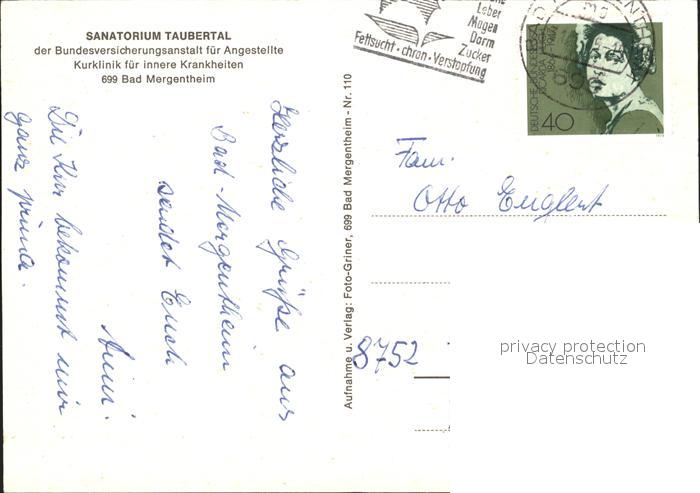 SANATORIUM TAUBERTAL
der Bundesversicherungsanstalt für Angestellte
Kurklinik für innere Krankheiten
699 Bad Mergentheim
Herzliche Grüße aus
Bad-Mergentheim
sendet Euch
Anni.
Die Kur bekommt mir
ganz prima.
Aufnahme u. Verlag: Foto-Griner, 699 Bad Mergentheim - Nr. 110
Leber
Magen
Darm
Zucker
Fettsucht · chron · Verstopfung
DEUTSCHE BUNDESPOST
40
Fam.
Otto Englert
8752
privacy protection
Datenschutz